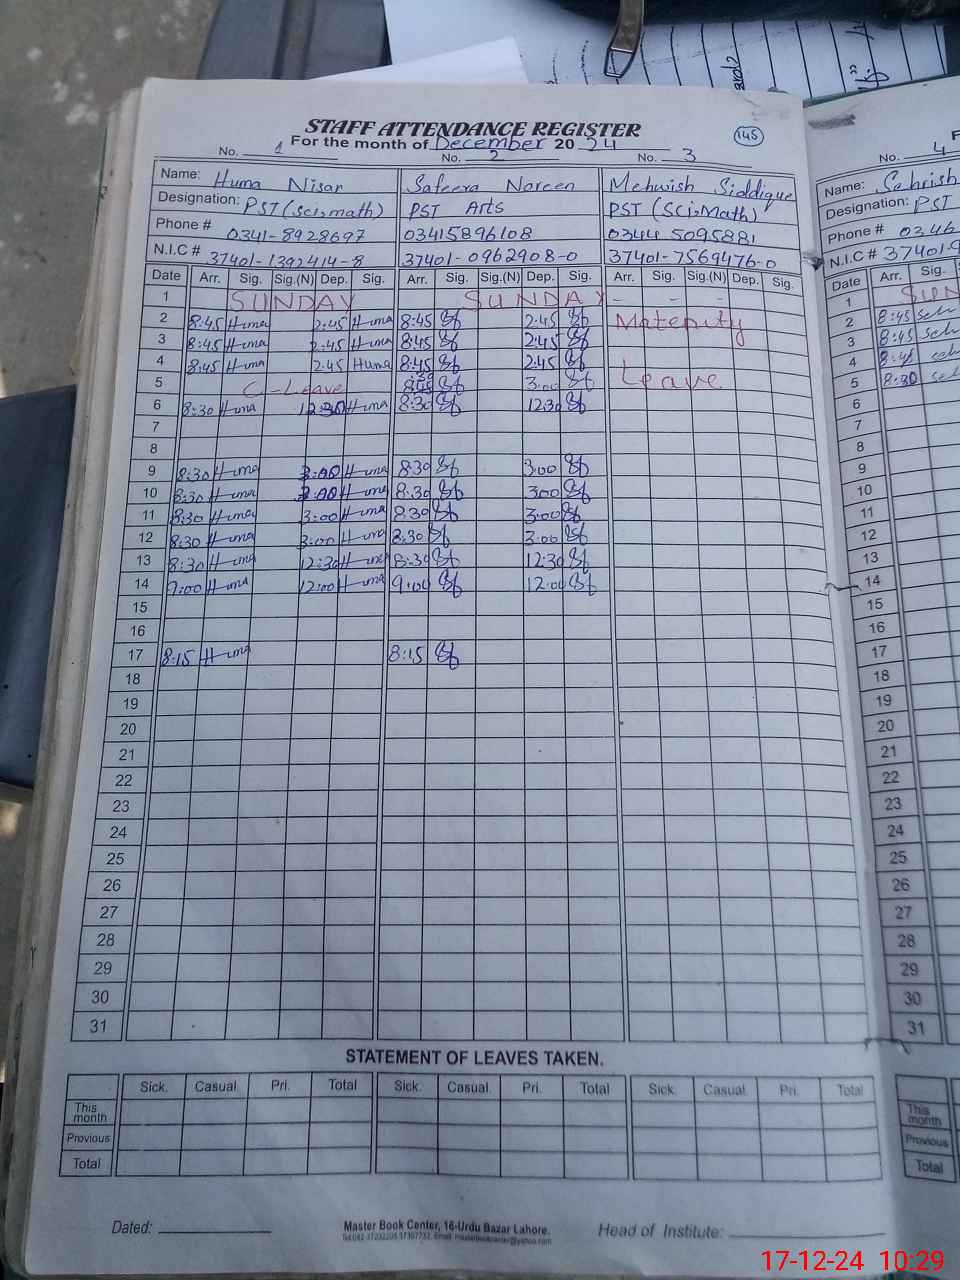 STAFF ATTENDANCE REGISTER
145
For the month of December 20 24
No. 1 No. 2 No. 3
Name: Huma Nisar Safeera Noreen Mehwish Siddique
Designation: PST (sci,math) PST Arts PST (SCi,Math)
Phone # 0341-8928697 03415896108 0344 5095881
N.I.C # 37401-1392414-8 37401-0962908-0 37401-7569476-0
Date Arr. Sig. Sig.(N) Dep. Sig. Arr. Sig. Sig.(N) Dep. Sig. Arr. Sig. Sig.(N) Dep. Sig.
1 SUNDAY SUNDAY - - -
2 8:45 Huma 2:45 Huma 8:45 2:45 Maternity
3 8:45 Huma 2:45 Huma 8:45 2:45
4 8:45 Huma 2:45 Huma 8:45 2:45
5 C-Leave 3:00 Leave
6 8:30 Huma 12:30 Huma 8:30 12:30
7
8
9 8:30 Huma 3:00 Huma 8:30 3:00
10 8:30 Huma 3:00 Huma 8:30 3:00
11 8:30 Huma 3:00 Huma 8:30 3:00
12 8:30 Huma 3:00 Huma 8:30 3:00
13 8:30 Huma 12:30 Huma 8:30 12:30
14 9:00 Huma 12:00 Huma 9:00 12:00
15
16
17 8:15 Huma 8:15
18
19
20
21
22
23
24
25
26
27
28
29
30
31
STATEMENT OF LEAVES TAKEN.
Sick. Casual. Pri. Total Sick. Casual. Pri. Total Sick. Casual. Pri. Total
This month
Provious
Total
Dated:
Master Book Center, 16-Urdu Bazar Lahore.
Head of Institute:
No. 4
Name: Sehrish
Designation: PST
Phone # 0346
N.I.C # 37401-9
Date Arr. Sig.
1 SUN
2 8:45 Seh
3 8:45 seh
4 8:45 seh
5 8:30 seh
6
7
8
9
10
11
12
13
14
15
16
17
18
19
20
21
22
23
24
25
26
27
28
29
30
31
This month
Provious
Total
17-12-24 10:29